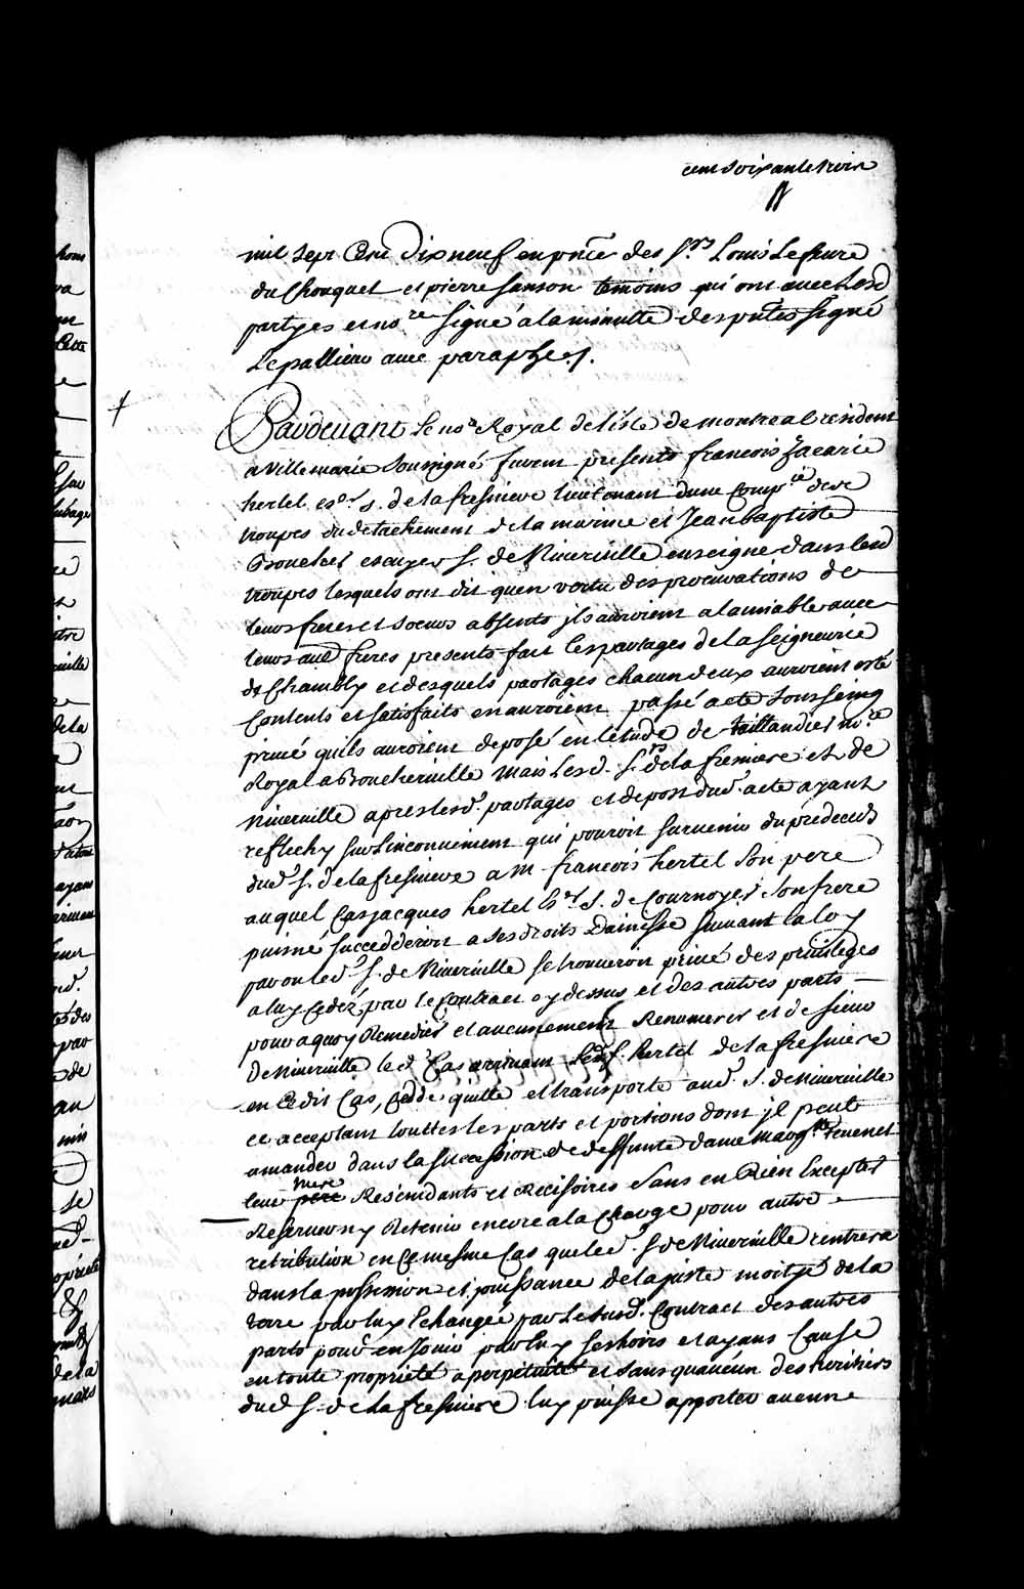 cent soixante trois
mil sept Cent Dix neuf en p.nce des S.rs Louis Lefeure
du Chouquet et pierre sanson temoins qui ont avec Lesd
partyes et no.re signé a la minutte des p.ntes signé
Lepallieur avec paraphe ./.
Pardeuant Le no.e Royal de l'isle de montreal resident
a Villemarie soussigné, furent presents francois Zacarie
hertel es.er s. de la fresniere lieutenant dune Comp.ie des
troupes du detachement de la marine et Jean baptiste
Boucher escuyer S. de Niuerville enseigne dans lesd
troupes lesquels ont dit quen vertu des procurations de
leurs freres et soeurs absents jls auroient a lamiable auec
leurs aud freres presents fait les partages de la seigneurie
de Chambly et desquels partages chacun deux auroient esté
Contents et satisfaits en auroient passé acte sous seing
priué quils auroient deposé en letude de taillandier no.re
Royal a Boucheruille mais Lesd. S.rs de la freniere et de
Niueruille apres lesd. partages et depost dud. acte ayant
reflechy sur Linconuenient qui pouroit suruenir du predeceds
dud. S. de la fresniere a M. francois hertel son pere
auquel Cas jacques hertel Es.er S. de Cournoyer son frere
puisné succedderoit a ses droits Dainesse suiuant la loy
par ou led. S. de Niueruille se trouueroit priué des priuileges
a luy cedez par le Contract cy dessus et des autres parts
pour a quoy Remedier et aucunement Renumerer led sieur
De Niueruille led Cas ariuant Led S. hertel de la fresniere
en Ce dit Cas, Cedde quitte et transporte aud. S. de Niueruille
ce acceptant touttes les parts et portions dont jl peut
amander dans la succession de deffunte dame Marg.te Teuenet
leur mere Rescindants et Recisoires Sans en Rien Excepter
Reseruer ny Retenir encore a la Charge pour autre
retribution en Ce mesme Cas que led. S de Niueruille rentrera
dans la possession et jouissance de la juste moityé de la
terre par luy Echangée par Le susd. Contract des autres
parts pour en Jouir par luy ses hoirs et ayans Cause
en toute proprieté a perpetuité et sans quaucun des heritiers
dud S. de la fresniere luy puisse apporter aucune